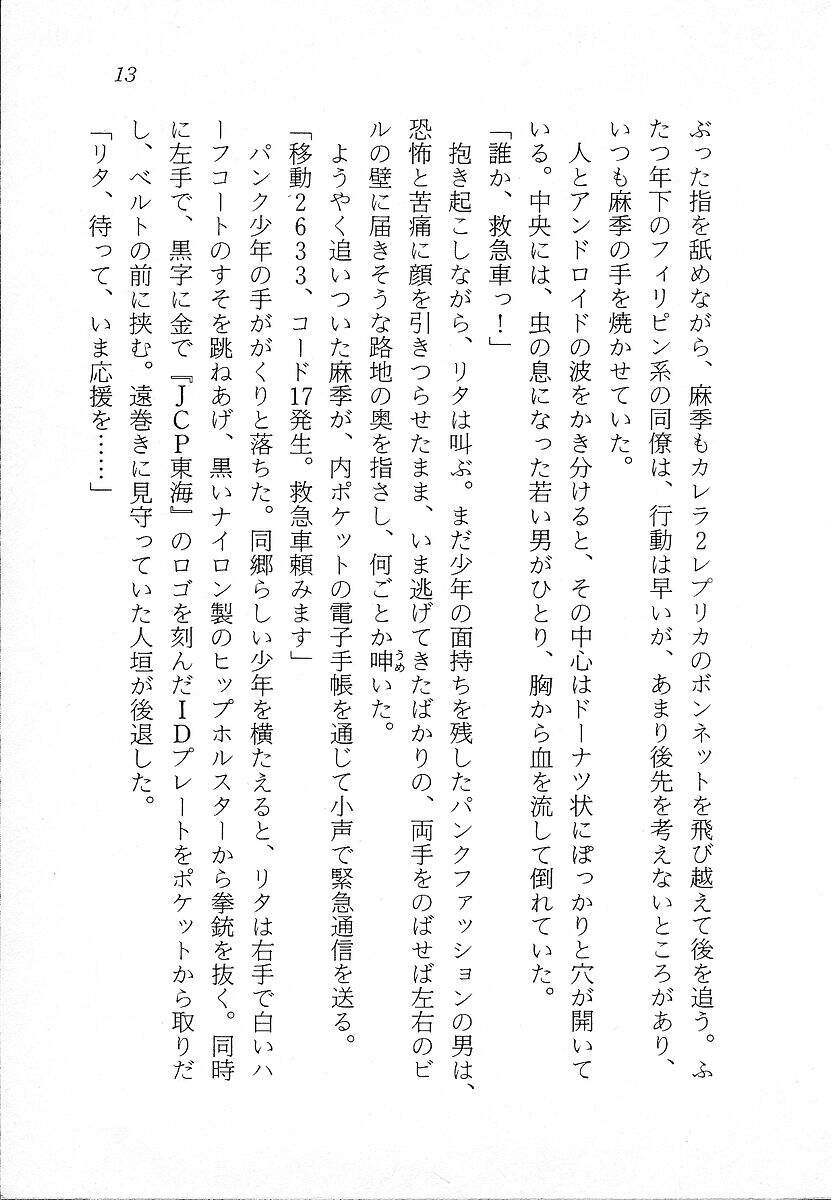 13
ぶった指を舐めながら、麻季もカレラ2レプリカのボンネットを飛び越えて後を追う。ふ
たつ年下のフィリピン系の同僚は、行動は早いが、あまり後先を考えないところがあり、
いつも麻季の手を焼かせていた。
人とアンドロイドの波をかき分けると、その中心はドーナツ状にぽっかりと穴が開いて
いる。中央には、虫の息になった若い男がひとり、胸から血を流して倒れていた。
「誰か、救急車っ！」
抱き起こしながら、リタは叫ぶ。まだ少年の面持ちを残したパンクファッションの男は、
恐怖と苦痛に顔を引きつらせたまま、いま逃げてきたばかりの、両手をのばせば左右のビ
ルの壁に届きそうな路地の奥を指さし、何ごとか呻うめいた。
ようやく追いついた麻季が、内ポケットの電子手帳を通じて小声で緊急通信を送る。
「移動2633、コード17発生。救急車頼みます」
パンク少年の手ががくりと落ちた。同郷らしい少年を横たえると、リタは右手で白いハ
ーフコートのすそを跳ねあげ、黒いナイロン製のヒップホルスターから拳銃を抜く。同時
に左手で、黒字に金で『JCP東海』のロゴを刻んだIDプレートをポケットから取りだ
し、ベルトの前に挟む。遠巻きに見守っていた人垣が後退した。
「リタ、待って、いま応援を……」